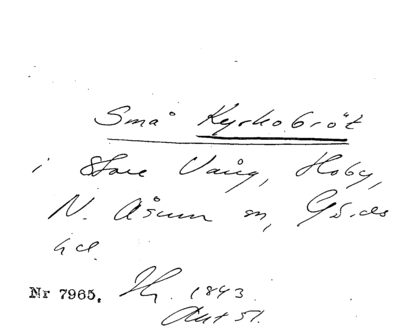 Små Kyrkobröt
i Store Vång, Hoby,
N. Åsum sn, Gärds
hd.
Nr 7965. 1843.
Akt 51.